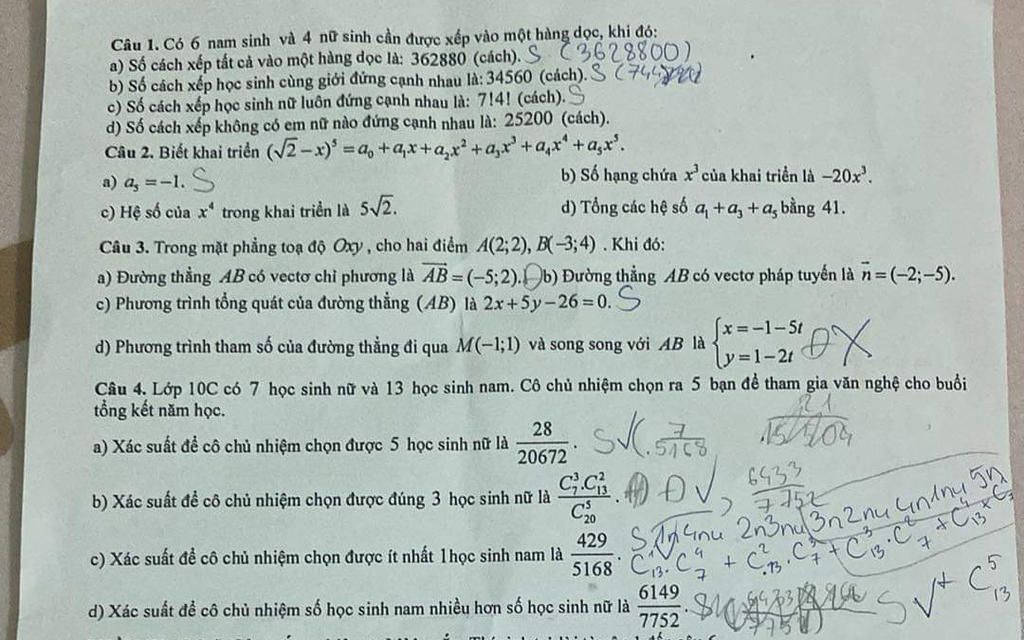 Câu 1. Có 6 nam sinh và 4 nữ sinh cần được xếp vào một hàng dọc, khi đó:
a) Số cách xếp tất cả vào một hàng dọc là: 362880 (cách). S (3628800)
b) Số cách xếp học sinh cùng giới đứng cạnh nhau là: 34560 (cách). S
c) Số cách xếp học sinh nữ luôn đứng cạnh nhau là: 7!4! (cách). S
d) Số cách xếp không có em nữ nào đứng cạnh nhau là: 25200 (cách).
Câu 2. Biết khai triển (√2 − x)⁵ = a₀ + a₁x + a₂x² + a₃x³ + a₄x⁴ + a₅x⁵.
a) a₅ = −1. S b) Số hạng chứa x³ của khai triển là −20x³.
c) Hệ số của x⁴ trong khai triển là 5√2. d) Tổng các hệ số a₁ + a₃ + a₅ bằng 41.
Câu 3. Trong mặt phẳng toạ độ Oxy, cho hai điểm A(2;2), B(−3;4) . Khi đó:
a) Đường thẳng AB có vectơ chỉ phương là AB⃗ = (−5;2). Đ b) Đường thẳng AB có vectơ pháp tuyến là n⃗ = (−2;−5).
c) Phương trình tổng quát của đường thẳng (AB) là 2x + 5y − 26 = 0. S
d) Phương trình tham số của đường thẳng đi qua M(−1;1) và song song với AB là { x = −1 − 5t
y = 1 − 2t Đ X
Câu 4. Lớp 10C có 7 học sinh nữ và 13 học sinh nam. Cô chủ nhiệm chọn ra 5 bạn để tham gia văn nghệ cho buổi
tổng kết năm học.
a) Xác suất để cô chủ nhiệm chọn được 5 học sinh nữ là 28/20672. S √ (7/5168 21/15504
b) Xác suất để cô chủ nhiệm chọn được đúng 3 học sinh nữ là C₇³.C₁₃²/C₂₀⁵. Đ √ 6433/7752
S 1n4nu 2n3nu 3n2nu 4n1nu 5n
c) Xác suất để cô chủ nhiệm chọn được ít nhất 1 học sinh nam là 429/5168. C₁₃¹.C₇⁴ + C₁₃².C₇³ + C₁₃³.C₇² + C₁₃⁴ ×
d) Xác suất để cô chủ nhiệm số học sinh nam nhiều hơn số học sinh nữ là 6149/7752. S √ + C₁₃⁵